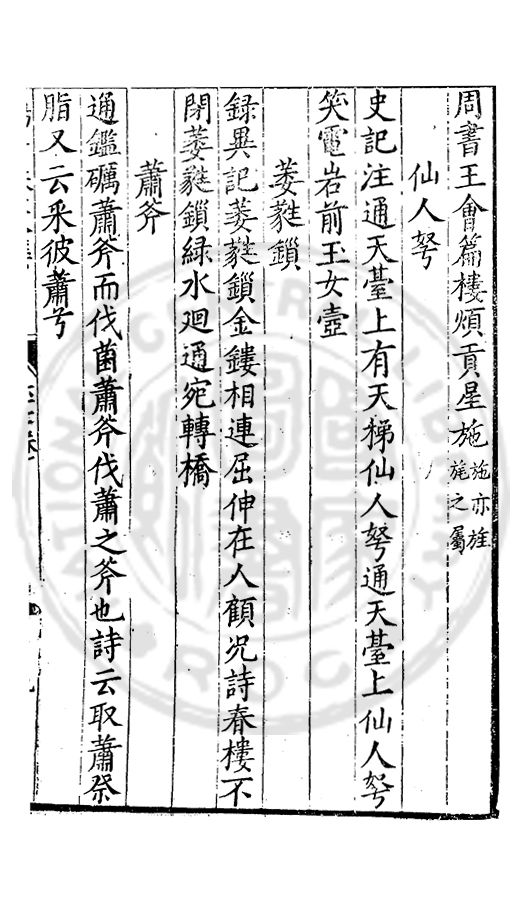 周書王會篇樓煩貢星施施亦旌旄之屬
仙人弩
史記注通天臺上有天梯仙人弩通天臺上仙人弩
笑電岩前玉女壺
萎蕤鎖
録異記萎蕤鎖金鏤相連屈伸在人顧况詩春樓不
閉萎蕤鎖緑水廻通宛轉橋
蕭斧
通鑑礪蕭斧而伐菌蕭斧伐蕭之斧也詩云取蕭祭
脂又云采彼蕭兮